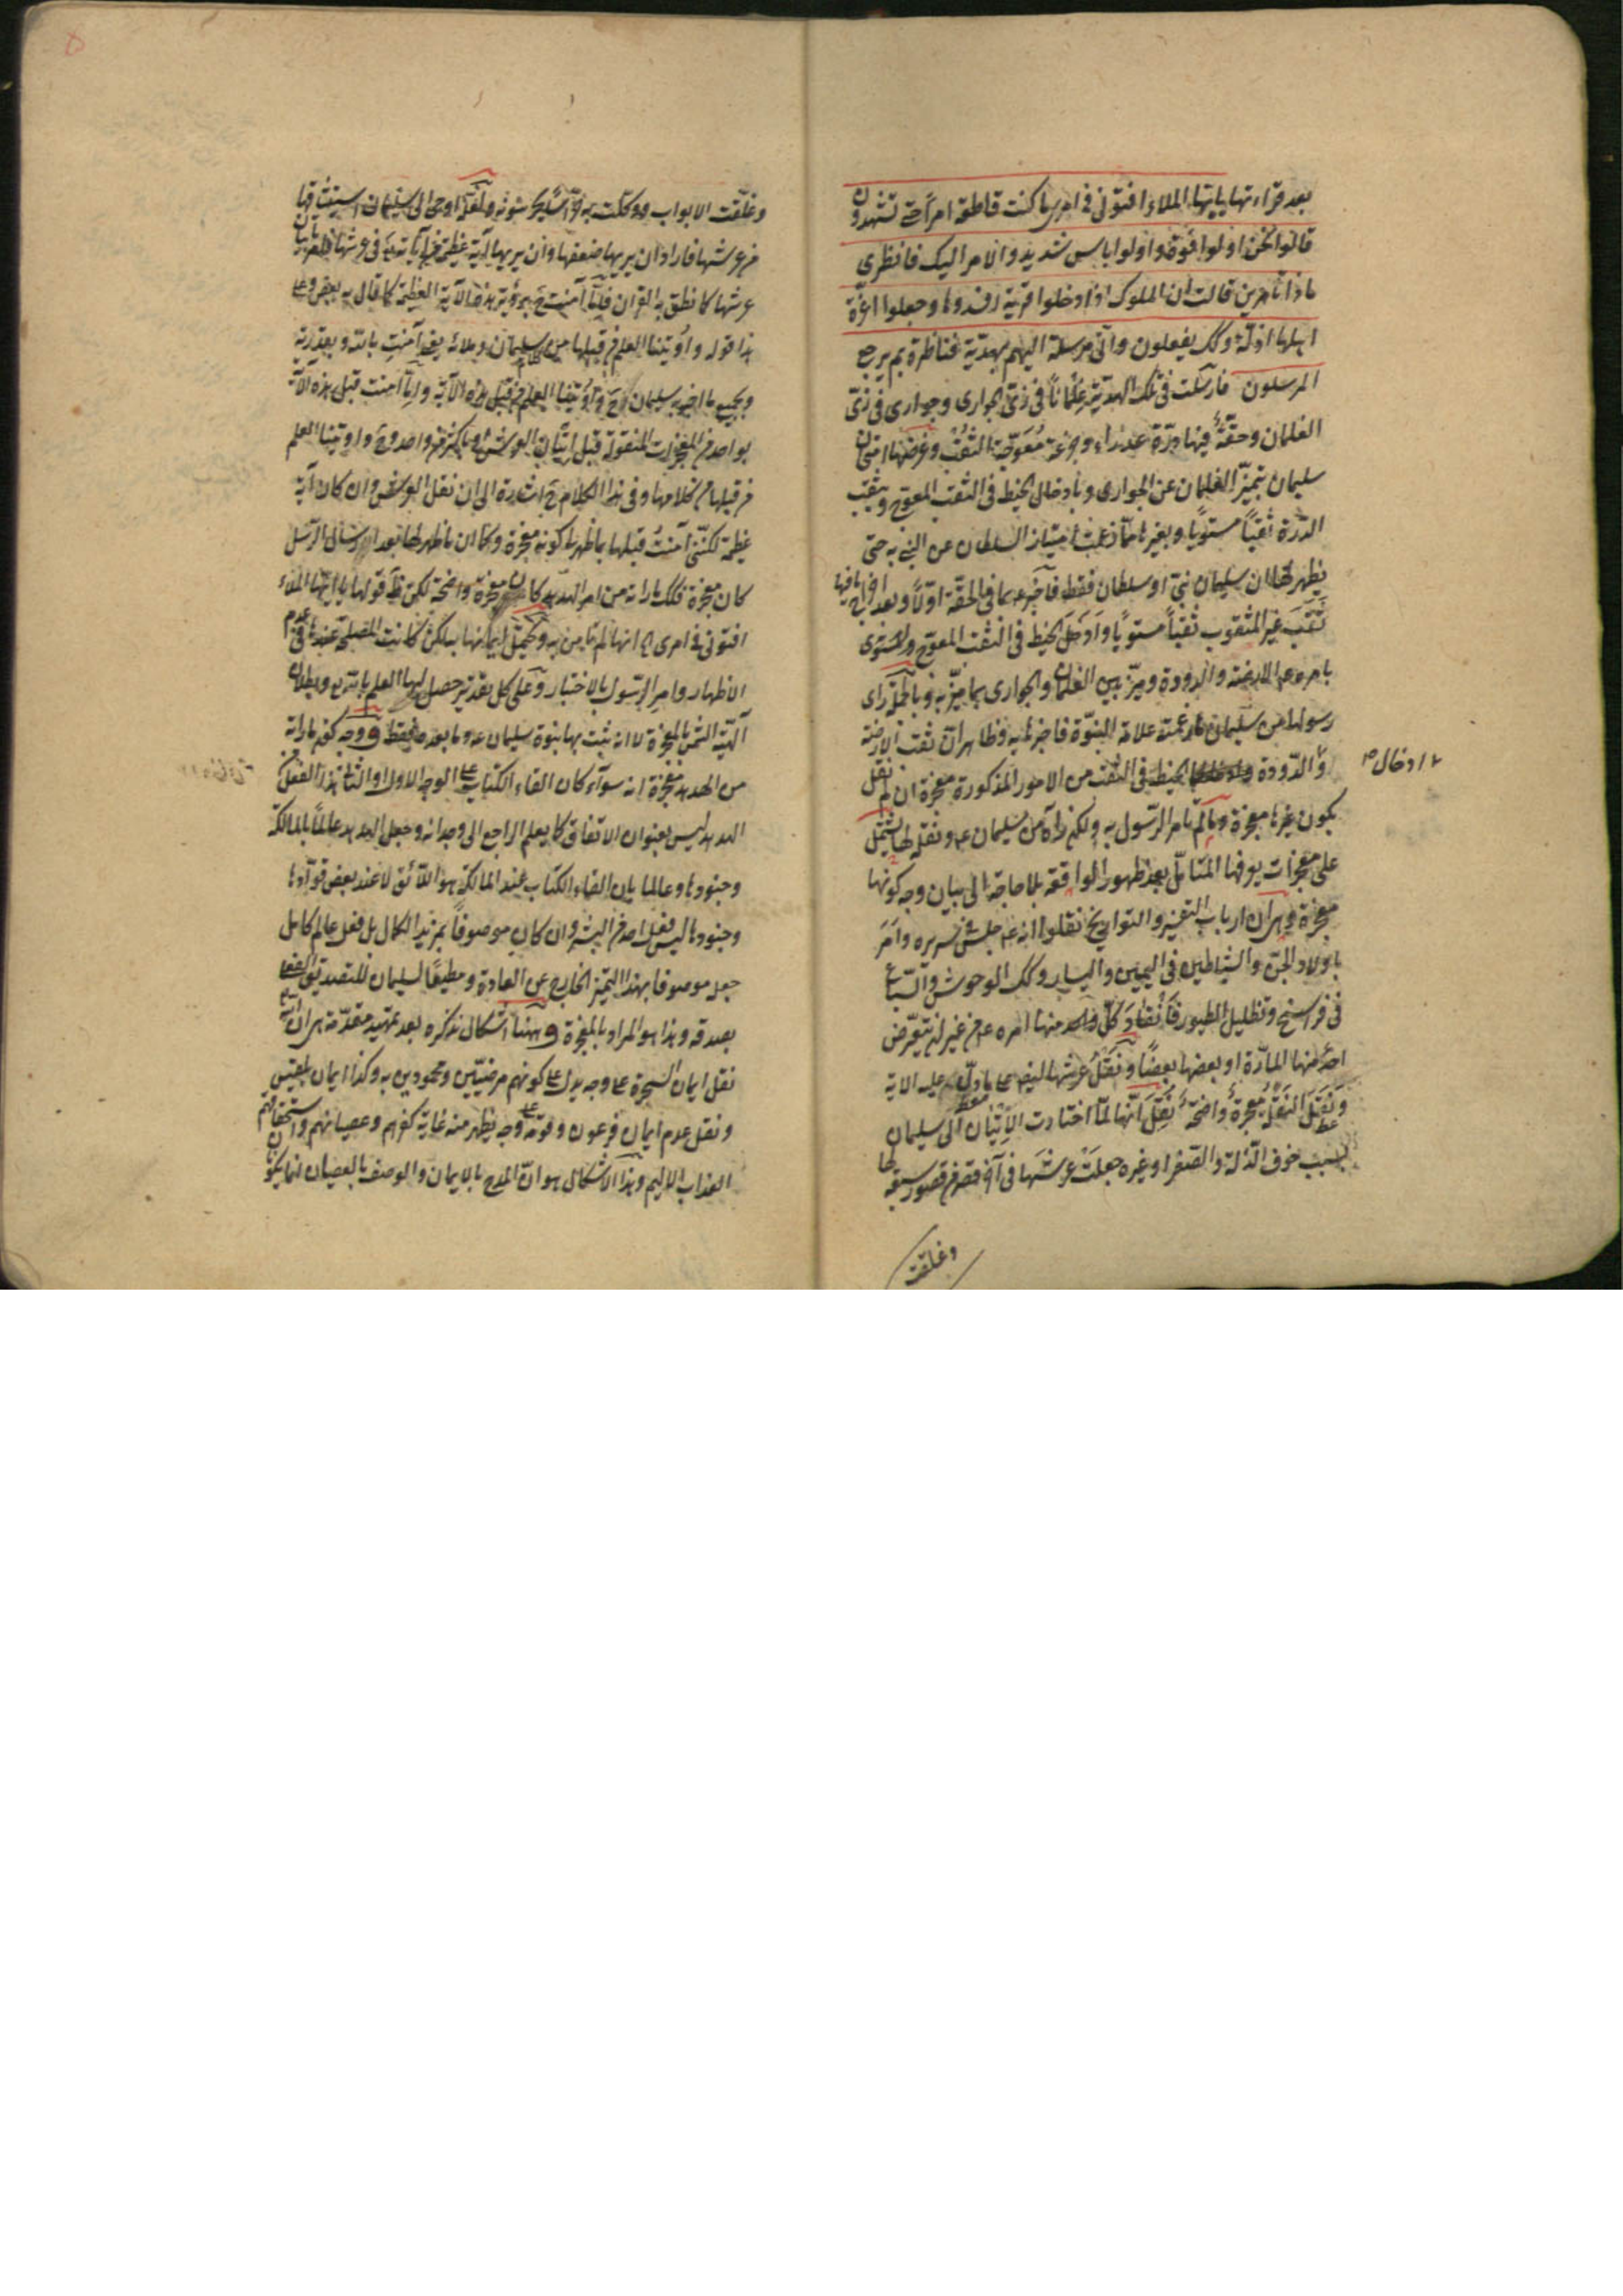 بعد قراءتها يا ايها الملاء افتوني في امري ما كنت قاطعة امرا حتى تشهدون
قالوا نحن اولوا قوة واولوا باس شديد والامر اليك فانظري
ماذا تامرين قالت ان الملوك اذا دخلوا قرية افسدوها وجعلوا اعزة
اهلها اذلة وكك يفعلون واني مرسلة اليهم بهدية فناظرة بم يرجع
المرسلون فارسلت في تلك الهدية غلمانا في زي الجواري وجواري في زي
الغلمان وحقة فيها درة عذراء وجزعة معوجة الثقب وغرضها امتحان
سليمان بتميز الغلمان عن الجواري وبادخال الخيط في الثقب المعوج وبثقب
الدرة ثقبا مستويا وبغيرها مما زعمت امتياز السلطان عن النبي به حتى
يظهر لها ان سليمان نبي او سلطان فقط فاخبر عم بما في الحقة اولا وبعد اخراج ما فيها
ثقب غير المثقوب ثقبا مستويا وادخل الخيط في الثقب المعوج والمستوى
بامره عم الارضة والدودة وميز بين الغلمان والجواري بما ميز به وبالجملة راى
رسولها من سليمان علامة النبوة فاخبرها به وظاهر ان ثقب الارضة
والدودة الخيط في الثقب من الامور المذكورة معجزة ان لم نقل
ادخال صح
بكون غيرها معجزة وما لم يامر الرسول به ولكن رآه من سليمان عم ونقله لها يشتمل
على معجزات يعرفها المتامل بعد ظهور الواقعة بلا حاجة الى بيان وجه كونها
معجزة وهي ان ارباب التفسير والتواريخ نقلوا انه عم جلس على سريره وامر
باولاد الجن والشياطين في اليمين واليسار وكك الوحوش والسباع
في فراسخ وتظليل الطيور فانقاد كل واحد منها امره عم من غير ان يتعرض
احد منها المارة او بعضها بعضا ونقل عرشها اليه على ما دل عليه الاية
ونقل النقل معجزة واضحة نقل انها لما اختارت الاتيان الى سليمان
بسبب خوف الذلة والصغر او غيره جعلت عرشها في آخر قصر من قصور سبعة لها
وغلقت
وغلقت الابواب ووكلت به حراسا يحرسونه ولعله اوحى الى سليمان استيثاقها
من عرشها فاراد ان يريها ضعفها وان يريها آية عظيمة من آياته تع في عرشها فامر باتيان
عرشها كما نطق به القرآن فانما آمنت ح برؤية هذه الآية العظيمة كما قال به بعض وعلى
هذا قوله واوتينا العلم من قبلها من كلام سليمان وملائه يعني آمنت بالله وبقدرته
وبجميع ما اخبر به سليمان ح واوتينا العلم من قبل هذه الآية واما آمنت قبل هذه الآية
بواحد من المعجزات المنقولة قبل اتيان العرش او باكثر من واحد وح واوتينا العلم
من قبلها من كلامها وفي هذا الكلام ح اشارة الى ان نقل العرش وان كان آية
عظيمة لكنني آمنت قبلها بما ظهر لي كونه معجزة وكما ان ما ظهر لها بعد ارسال الرسل
كان معجزة فكك ما راته من امر الهدهد كان معجزة واضحة لكن ظ قولها يا ايها الملاء
افتوني في امري انها لم تامن به ويحتمل ايمانها به لكن كانت المصلحة عندها في عدم
الاظهار وامر الرسول بالاختبار وعلى كل تقدير حصل لها العلم بالله تع وبطلان
آلهية الشمس بالمعجزة لا انه ثبت بها نبوة سليمان عم وما بعده فقط ووجه كون ما راته
من الهدهد معجزة انه سواء كان القاء الكتاب على الوجه الاول او الثاني هذا الفعل من
الهدهد ليس بعنوان الاتفاق كما يعلم الراجع الى وجدانه وجعل الهدهد عالما بالمالكة
وجنودها وعالما بان القاء الكتاب عند المالكة هو اللائق لا عند بعض قوادها
وجنودها ليس فعل احد من البشر وان كان موصوفا بمزيد الكمال بل فعل عالم كامل
جعله موصوفا بهذا التميز الخارج عن العادة ومطيعا لسليمان للتصديق
بصدقه وهذا هو المراد بالمعجزة وههنا اشكال نذكره بعد تمهيد مقدمة هي ان الله تع
نقل ايمان السحرة على وجه يدل على كونهم مرضيين ومحمودين به وكذا ايمان بلقيس
ونقل عدم ايمان فرعون وقومه على وجه يظهر منه غاية كفرهم وعصيانهم واستحقاقهم
العذاب الاليم وهذا الاشكال هو ان المدح بالايمان والوصف بالعصيان انما يكون